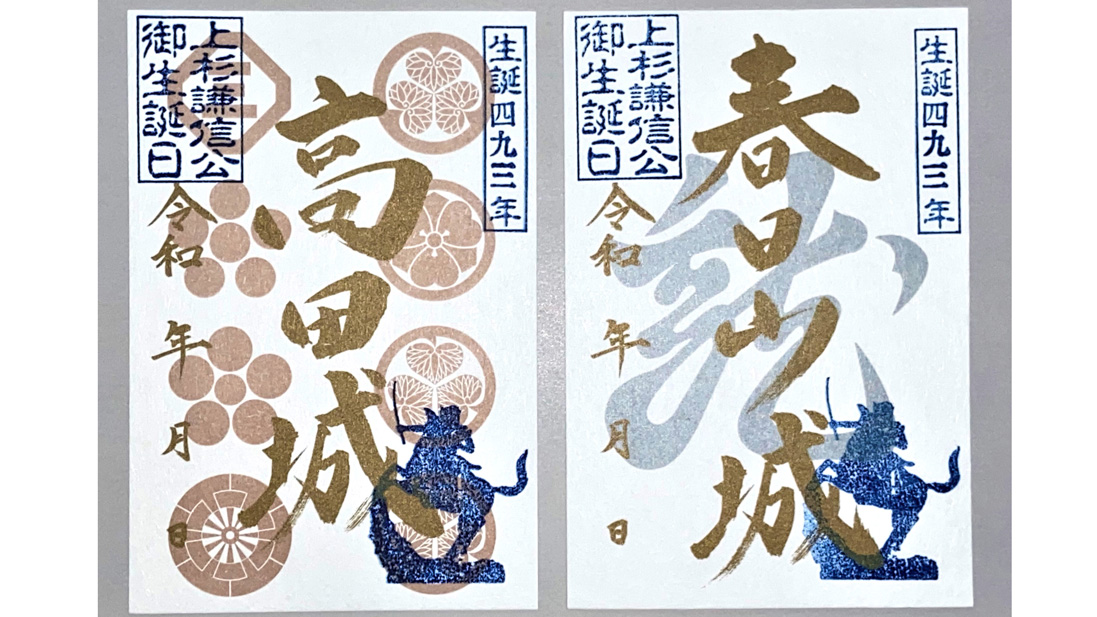 生誕四九三年
高田城
上杉謙信公
御生誕日
令和 年 月 日
生誕四九三年
春日山城
龍
上杉謙信公
御生誕日
令和 年 月 日